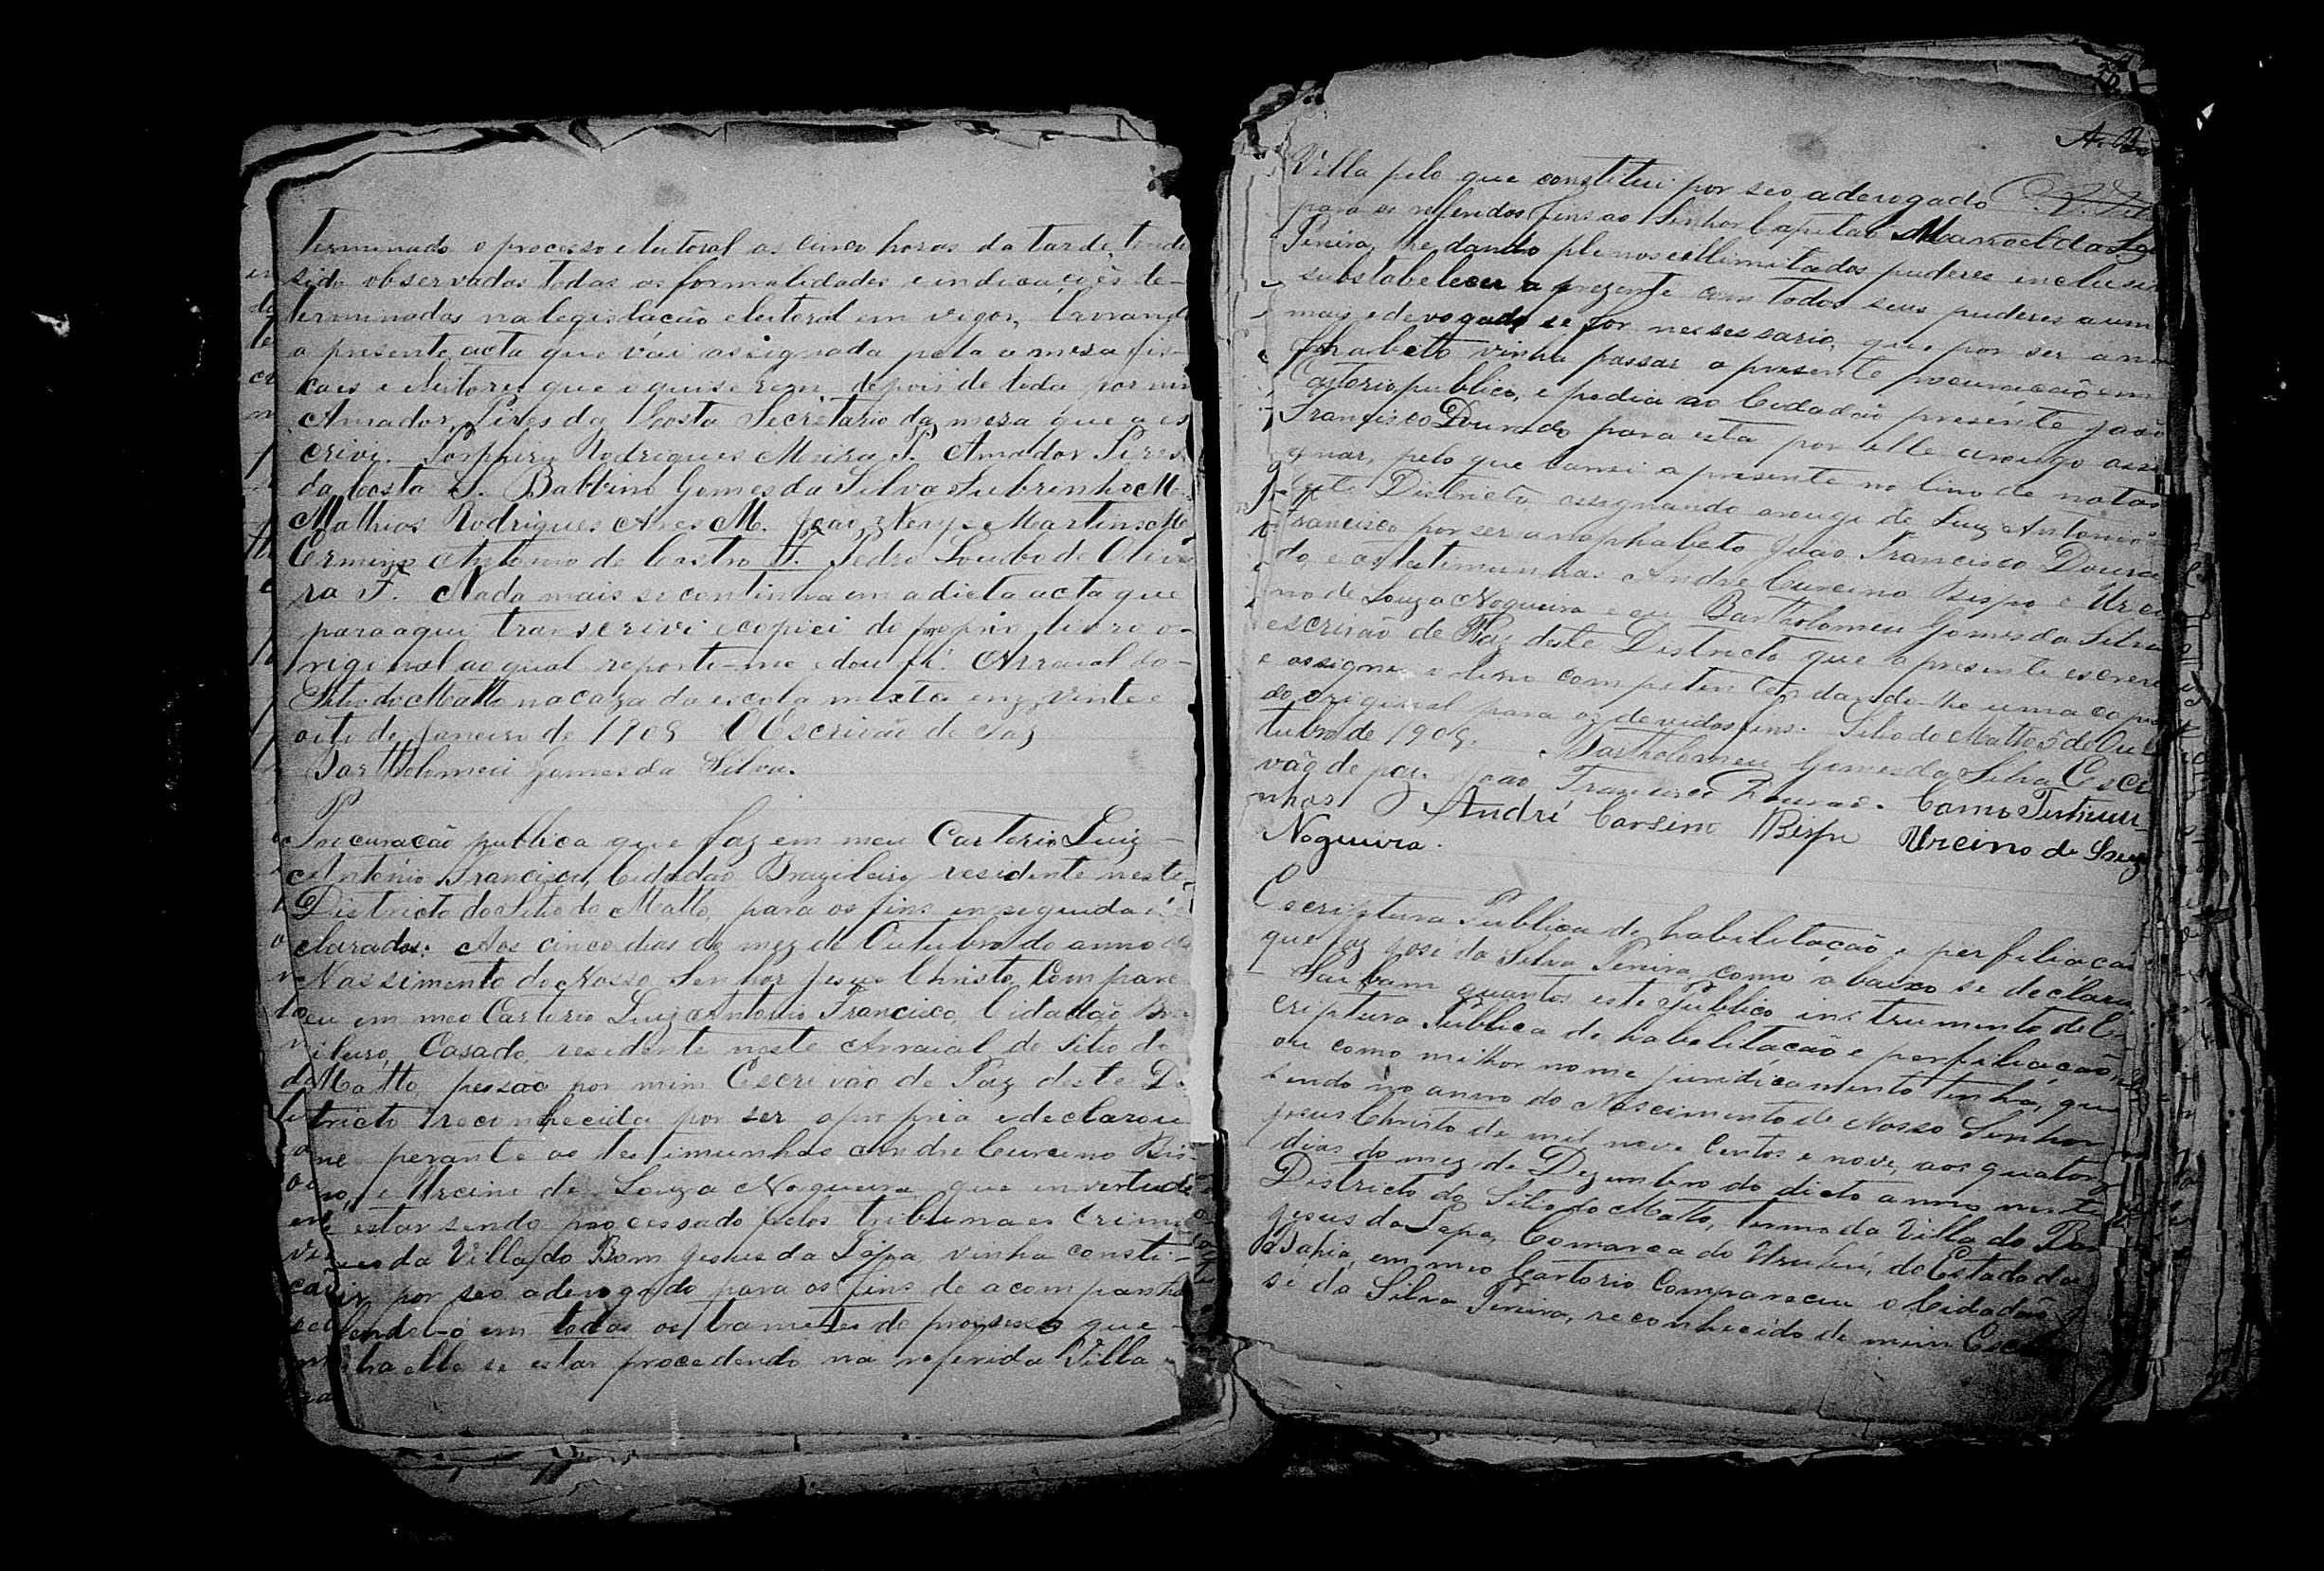 Terminado o processo eleitoral as cinco horas da tarde, tendo
sido observadas todas as formalidades e indicações de-
terminadas na legislacão eleitoral em vigor, lavrando
a presente acta que vái assignada pela a mesa fis-
caes e eleitores que o quiserem depois de lida por mim
Amador Pires da Costa Secretario da mesa que a es
crivi. Porphirio Rodrigues Meira P. Amador Pires
da Costa S. Balbino Gomes da Silva Subrinho M.
Mathias Rodrigues Alves M. João Martins M
Ermino Antonio de Castro F. Pedro Loubo de Olivei
ra F. Nada mais se continha em a dicta acta que
para aqui transcrivi e copiei do proprio livro o-
riginal ao qual reporti-me e dou fé. Arraial do
Sitio do Matto na caza da escola mixta em vinte e
oito de Janeiro de 1909 O Escrivão de Paz
Bartholomeu Gomes da Silva.
Procuração publica que faz em meu Cartorio Luiz
Antonio Francisco, Cidadão Brazileiro, residente neste
Districto do Sitio do Matto, para os fins em seguida de
clarados: Aos cinco dias do mez de Outubro do anno do
Nassimento de Nosso Senhor Jesus Christo, Compare
ceu em meo Cartorio Luiz Antonio Francisco, Cidadão Bra
zileiro, Casado, residente neste Arraial do Sitio do
Matto, pessão por mim Escrivão de Paz deste Dis
tricto reconhecida por ser a propria e declarou
me perante as testimunhas Andre Curcino Bis-
po, e Urcino de Souza Nogueira que em vertude
de estar sendo processado pelos tribunaes Crimi
naes da Villa do Bom Jesus da Lapa, vinha consti-
tuir por seo adevogado para os fins de acompanha
defendel-o em todos os tramites do processo que
contra elle se estar procedendo na referida Villa
Villa pelo que constitui por seo adevogado
para os referidos fins ao Senhor Capitão Manoel da
Pereira, lhe dando plenos e illimitados puderes inclusive
substabelecer a prezente com todos seus puderes a um
mais adevogado se for nessessario, que por ser ana
lphabeto vinha passar a presente procuração em
Cartorio publico, e pedia ao Cidadão presente João
Francisco Dourado para esta por elle arougo assi
gnar, pelo que lansei a presente no livro de notas
deste Districto, assignando arougo de Luiz Antonio
Francisco por ser anaphabeto João Francisco Doura
do, e as testimunhas Andre Curcino Bispo e Urci
no de Souza Nogueira e eu Bartholomeu Gomes da Silva
escrivão de Paz deste Districto que a presente escrevi
e assignei o livro competente dando-lhe uma copia
do original para os devidos fins. Sitio do Matto 5 de Ou
tubro de 1909. Bartholomeu Gomes da Silva Escri
vão de paz. João Francisco Dourado. Como Testimu
nhas André Corsino Bispo Urcino de Souza
Nogueira.
Escriptura Publica de habilitação e perfiliacão
que faz José da Silva Pereira, como a baixo se declara
Saibam quantos este Publico instrumento de Es
criptura Publica de habelitacão e perfiliacão,
ou como milhor nome juridicamente tenha, que
sendo no anno do Nascimento de Nosso Senhor
Jesus Christo de mil nove Centos e nove, aos quatorze
dias do mez de Dezembro do dicto anno neste
Districto do Sitio do Matto, termo da Villa do Bom
Jesus da Lapa, Comarca do Urubú, do Estado da
Bahia, em meo Cartorio Compareceu o Cidadão Jo
sé da Silva Pereira, reconhecido de mim Escrivão